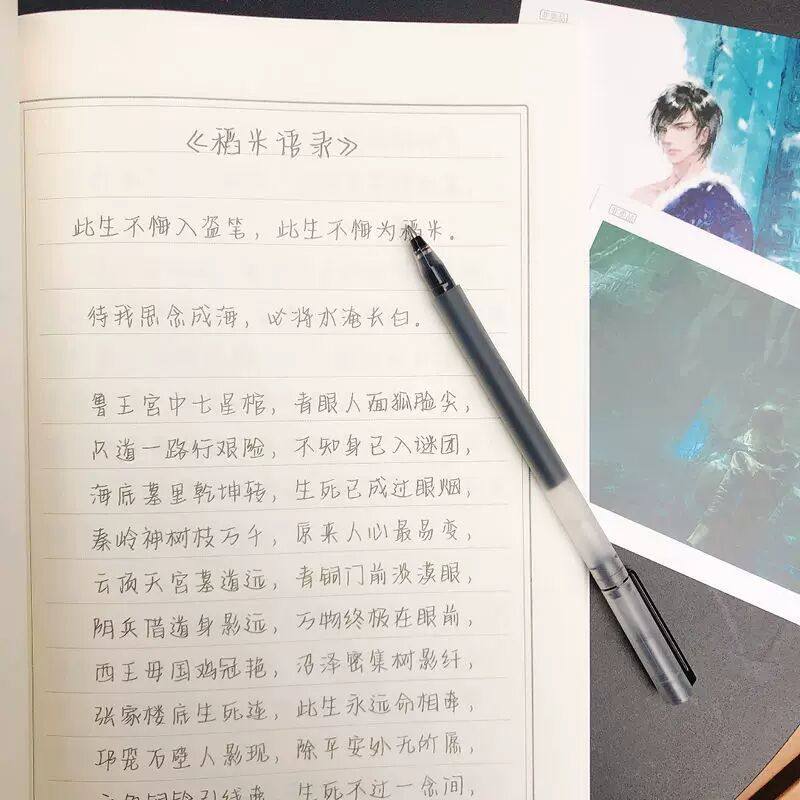 《稻米语录》
此生不悔入盗笔，此生不悔为稻米。
待我思念成海，必将水淹长白。
鲁王宫中七星棺，青眼人面狐脸尖，
只道一路行艰险，不知身已入谜团，
海底墓里乾坤转，生死已成过眼烟，
秦岭神树枝万千，原来人心最易变，
云顶天宫墓道远，青铜门前淡漠眼，
阴兵借道身影远，万物终极在眼前，
西王母国鸡冠艳，沼泽密集树影纤，
张家楼底生死连，此生永远命相牵，
邛笼石壁人影现，除平安外无所愿，
生死不过一念间，
非卖品
非卖品